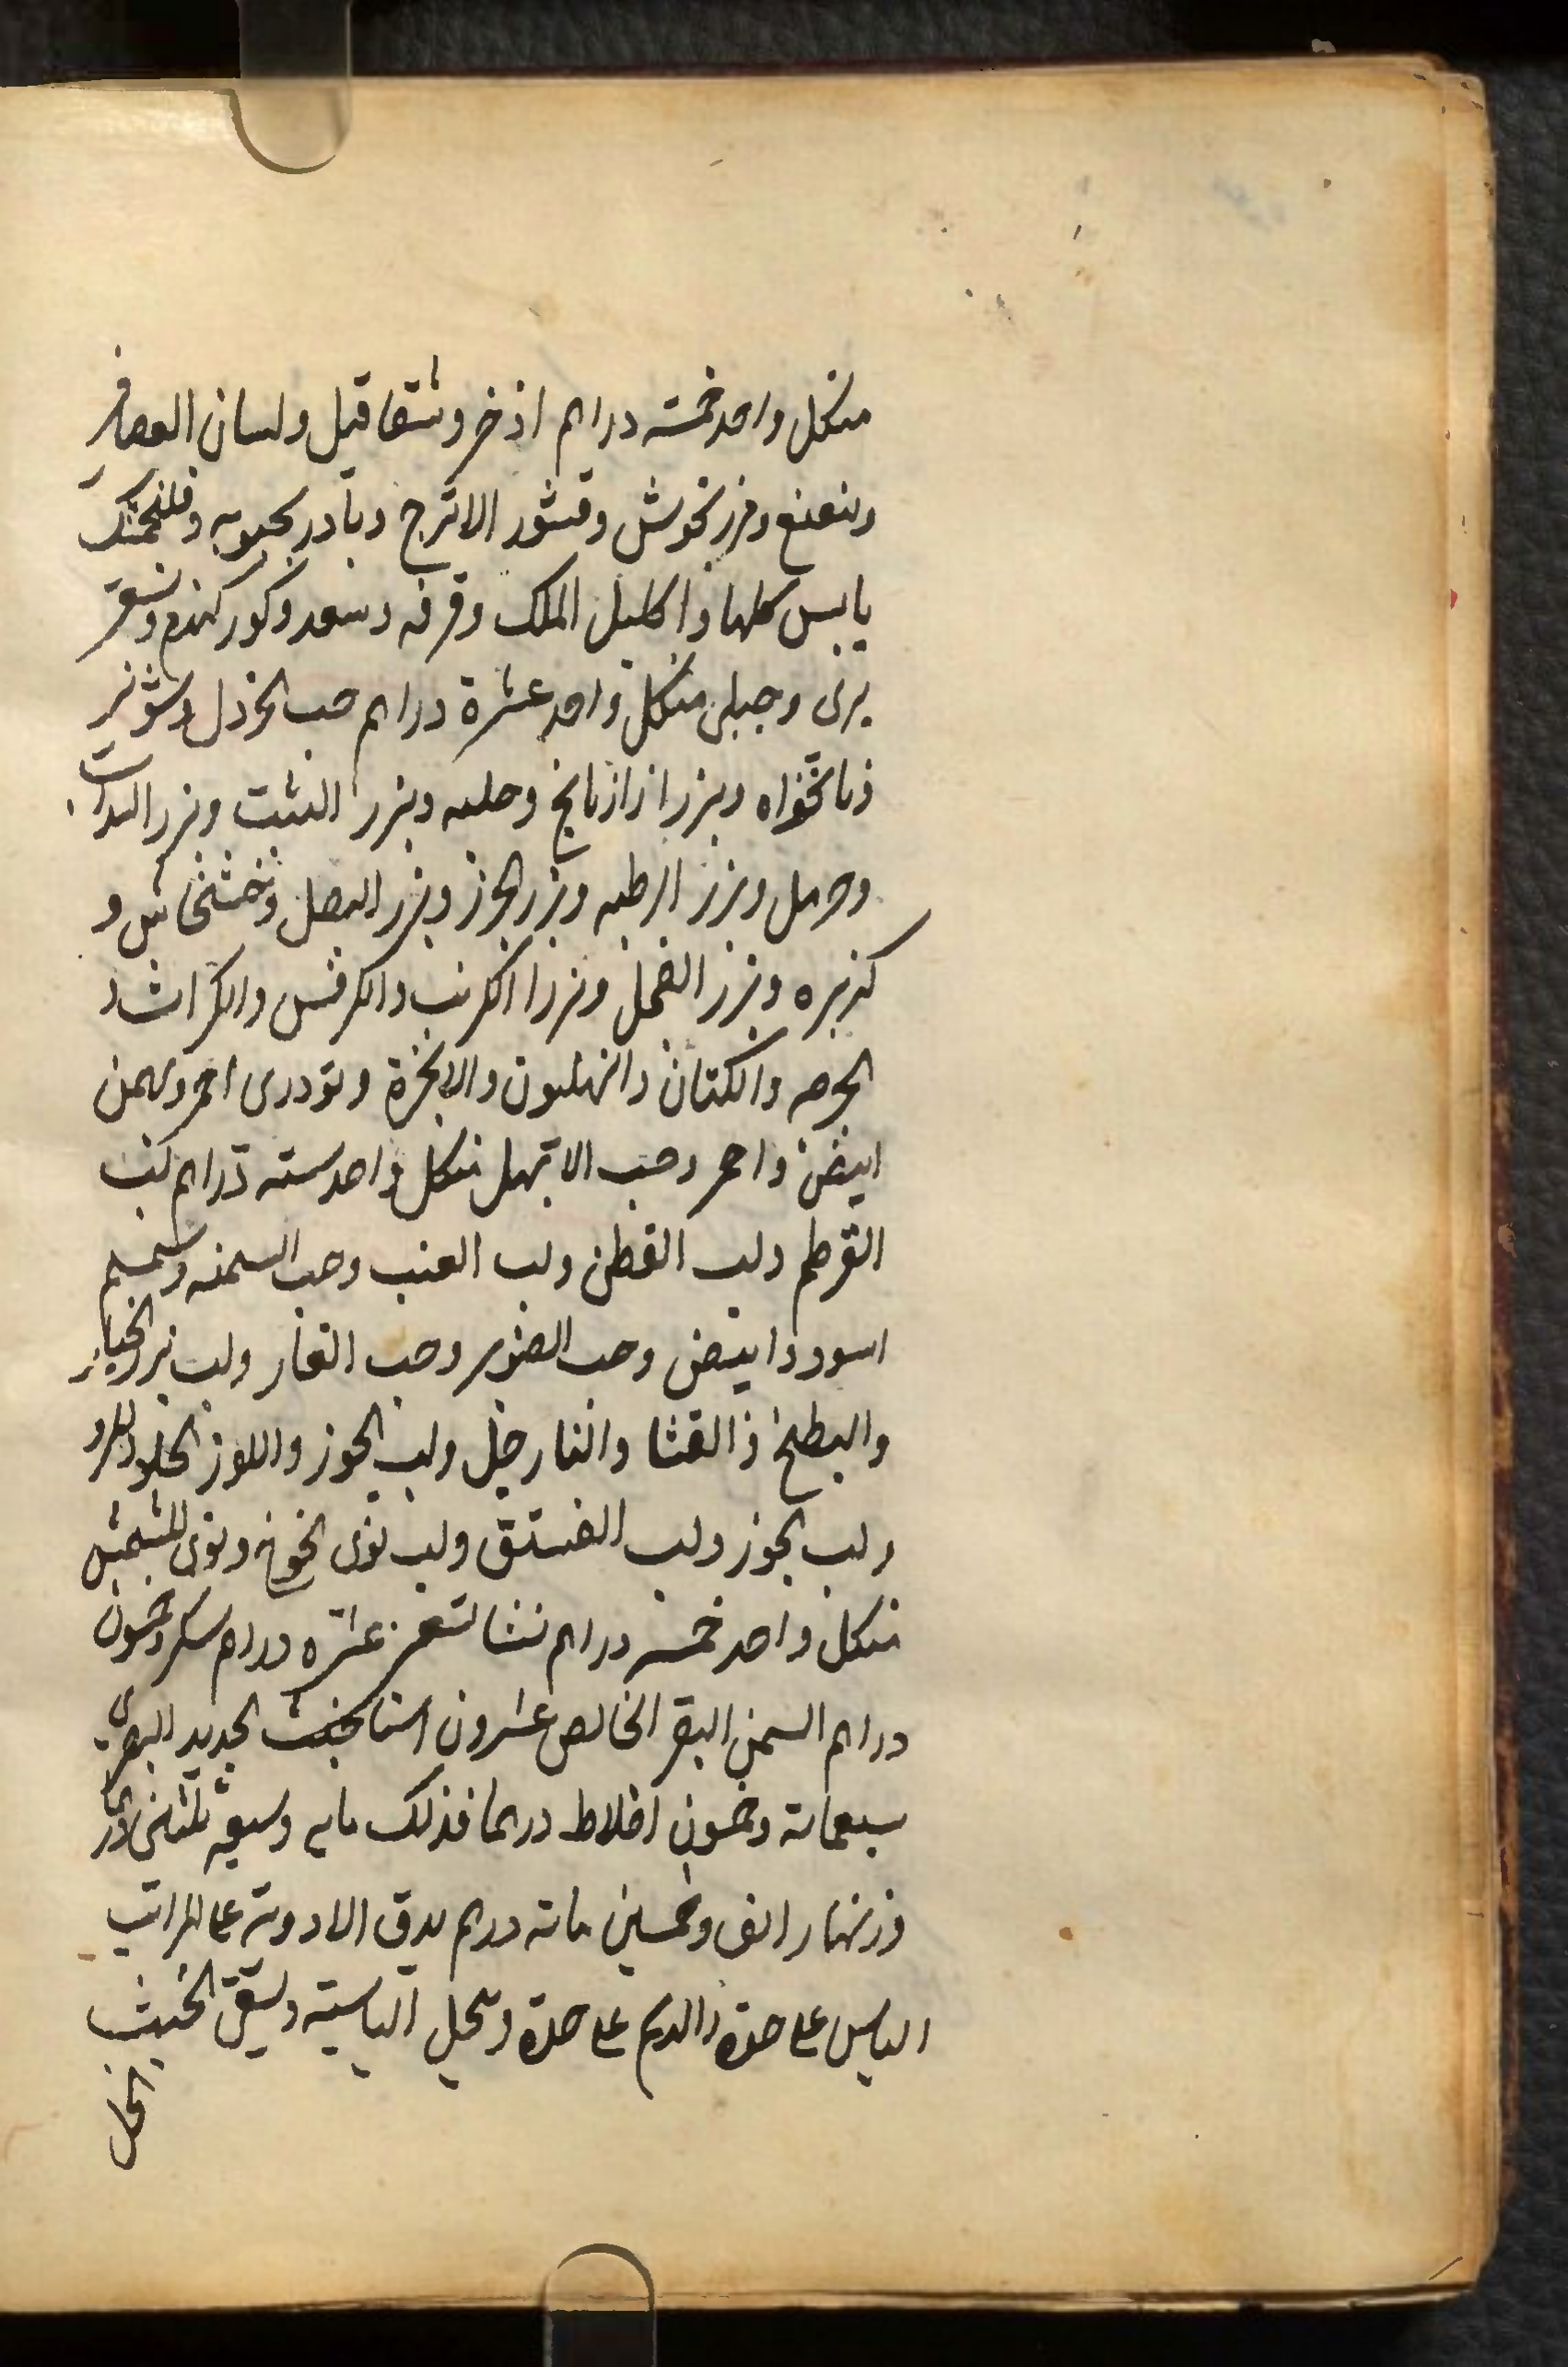 منكل واحد خمسته دراهم اذخر وشقاقيل ولسان العصافر
ونعنع ومرزنخوش وقشور الاترج وبادرنجبويه وفلنجمشك
يابس كلها واكليل الملك وقرفه وسعد وكوركندم وسعتر
برى وجبلى منكل واحد عشرة دراهم حب الخردل وشونيز
ونانخواه وبزر ازازيانج وحلبه وبزر الشبت وبزر السداب
وحرمل وبزر الرطبه وبزر الجزر وبزر البصل وخشخاش و
كزبره وبزر الفجل وبزر الكرنب والكرفس والكراث و
الجرجير والكتان والهليون والانجرة وتودرى احمر وبهمن
ابيض واحمر وحب الابهل منكل واحد سته دراهم لب
القرطم ولب القطن ولب العنب وحب السمنه وسمسم
اسود وابيض وحب الصنوبر وحب الغار ولب بزر الخيار
والبطيخ والقثا والنارجيل ولب الجوز واللوز الحلو والمر
ولب الجوز ولب الفستق ولب نوى الخوخ ونوى المشمش
منكل واحد خمسه دراهم عشره دراهم سكر وخمسون
دراهم السمن البقر الخالص عشرون خبث الحديد البصرى
سبعمائة وخمسون اخلاط درهما فذلك مايه وسبعه
وزنها الف وخمسين مائه درهم يدق الادويه على المراتب
اليابس على حدة والدسم على حدة وينحل اليابسته ويسقى الخبث
الخل